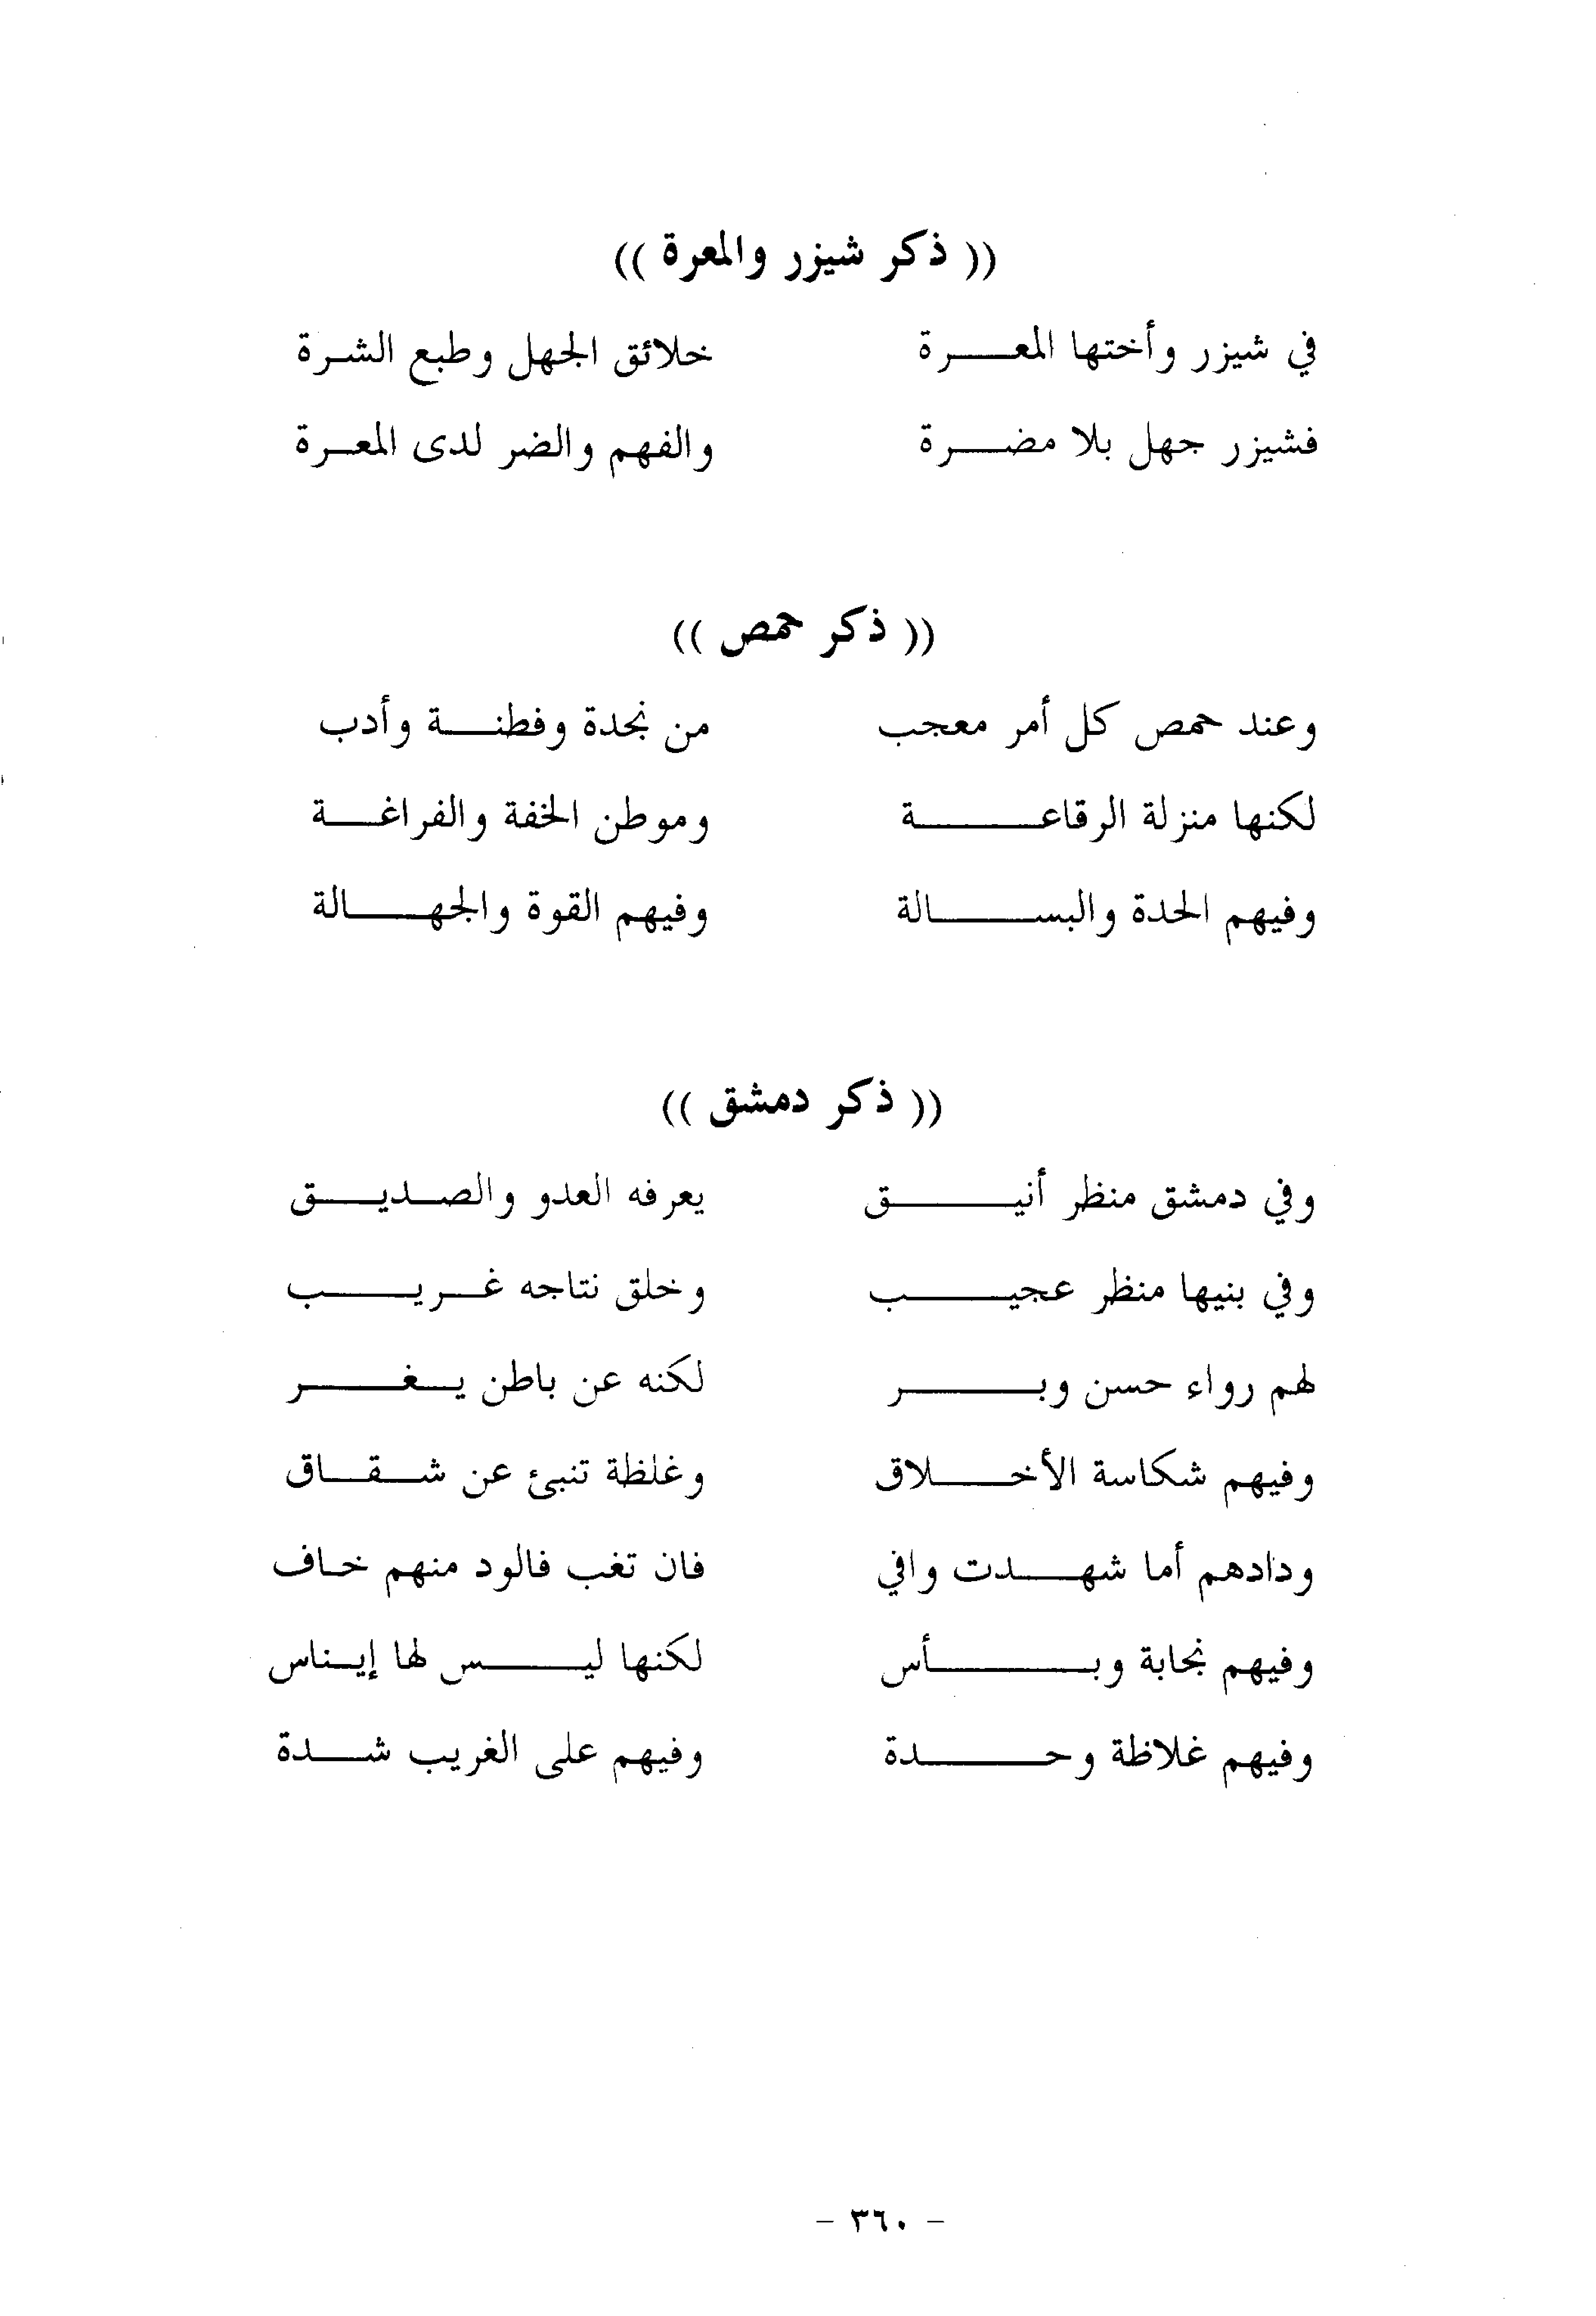 (( ذكر شيزر والمعرة ))
في شيزر وأختها المعرة خلائق الجهل وطبع الشرة
فشيزر جهل بلا مضرة والفهم والضر لدى المعرة
(( ذكر حمص ))
وعند حمص كل أمر معجب من نجدة وفطنة وأدب
لكنها منزلة الرقاعة وموطن الخفة والفراغة
وفيهم الحدة والبسالة وفيهم القوة والجهالة
(( ذكر دمشق ))
وفي دمشق منظر أنيق يعرفه العدو والصديق
وفي بنيها منظر عجيب وخلق نتاجه غريب
لهم رواء حسن وبر لكنه عن باطن يغر
وفيهم شكاسة الأخلاق وغلظة تنبئ عن شقاق
ودادهم أما شهدت وافي فان تغب فالود منهم خاف
وفيهم نجابة وبأس لكنها ليس لها إيناس
وفيهم غلاظة وحدة وفيهم على الغريب شدة
- ٣٦٠ -